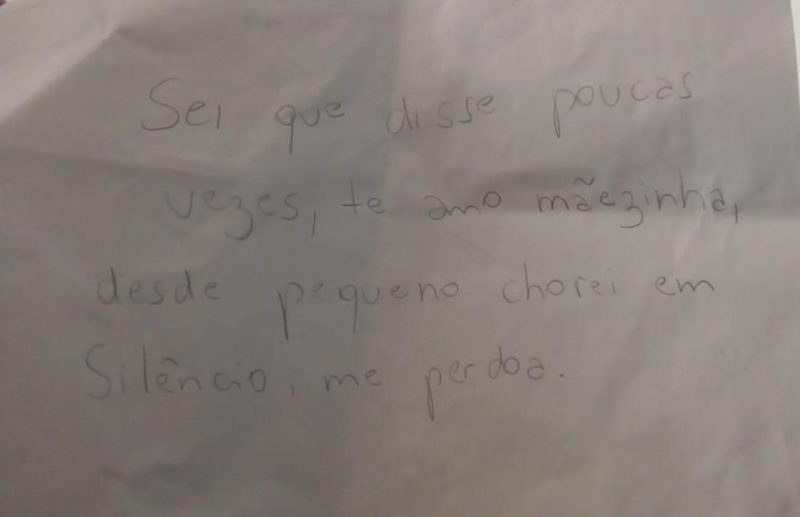 Sei que disse poucas
vezes, te amo mãezinha,
desde pequeno chorei em
Silêncio, me perdoa.